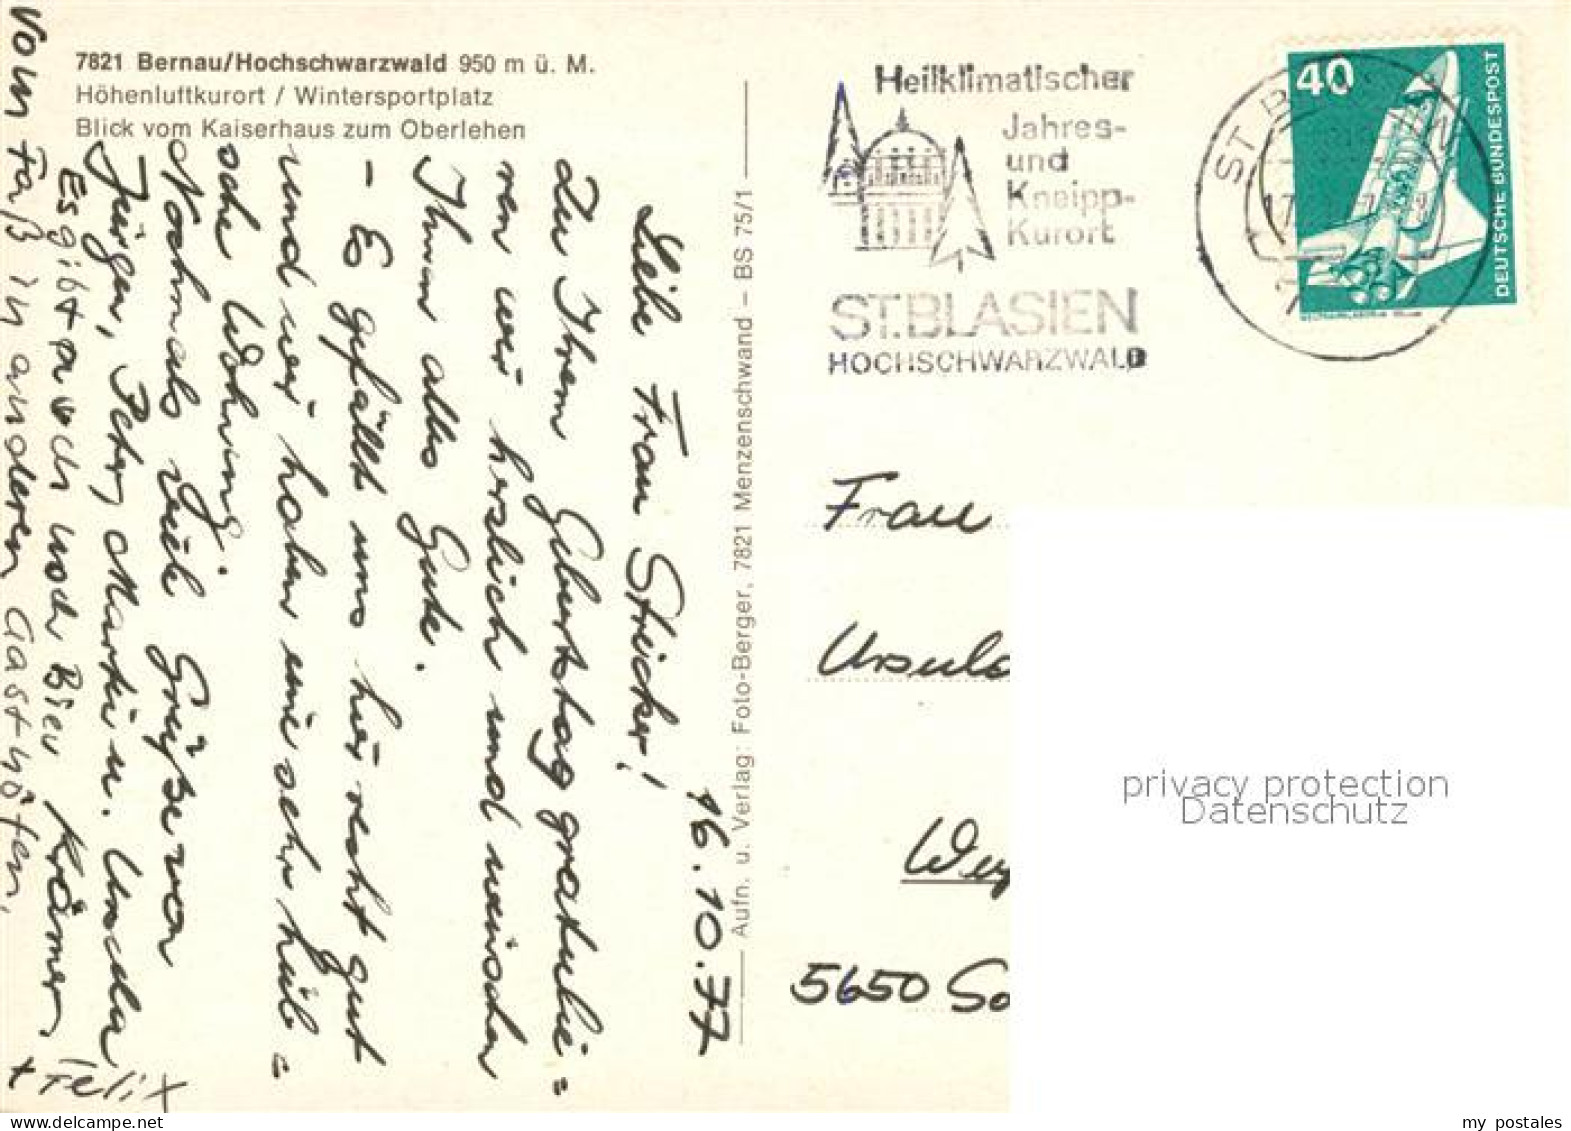 7821 Bernau/Hochschwarzwald 950 m ü. M.
Höhenluftkurort / Wintersportplatz
Blick vom Kaiserhaus zum Oberlehen
16.10.77
Liebe Frau Streicher!
Zu Ihrem Geburtstag gratulie=
ren wir herzlich und wünschen
Ihnen alles Gute.
- Es gefällt uns hier recht gut
und wir haben eine sehr hüb=
sche Wohnung.
Nochmals viele Grüße von
Jürgen, Peter, Martin u. Ursula
Krämer
Es gibt auch noch Bier
vom Faß in anderen Gasthöfen,
+ Felix
Aufn. u. Verlag: Foto-Berger, 7821 Menzenschwand – BS 75/1
Heilklimatischer
Jahres-
und
Kneipp-
Kurort
ST.BLASIEN
HOCHSCHWARZWALD
40
DEUTSCHE BUNDESPOST
Frau
Ursula
5650 So
privacy protection
Datenschutz
my postales